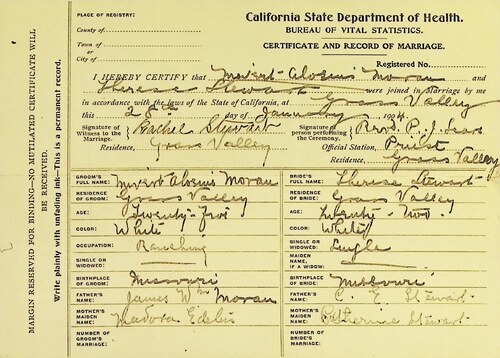 MARGIN RESERVED FOR BINDING—NO MUTILATED CERTIFICATE WILL
BE RECEIVED.
Write plainly with unfading ink—This is a permanent record.
PLACE OF REGISTRY:
County of
Town of
or
City of
California State Department of Health.
BUREAU OF VITAL STATISTICS.
CERTIFICATE AND RECORD OF MARRIAGE.
Registered No.
I HEREBY CERTIFY that Alosius Moran and
Therese Stewart were joined in marriage by me
in accordance with the laws of the State of California, at Grass Valley
this 28th day of January 1904
Signature of Witness to the Marriage, Rachel Stewart
Residence, Grass Valley
Signature of person performing the Ceremony, Rev. P. J.
Official Station, Priest
Residence, Grass Valley
GROOM'S FULL NAME: Alosius Moran
RESIDENCE OF GROOM: Grass Valley
AGE: Twenty-
COLOR: White
OCCUPATION: Ranching
SINGLE OR WIDOWED:
BIRTHPLACE OF GROOM: Missouri
FATHER'S NAME: James Wm Moran
MOTHER'S MAIDEN NAME: Edelin
NUMBER OF GROOM'S MARRIAGE:
BRIDE'S FULL NAME: Therese Stewart
RESIDENCE OF BRIDE: Grass Valley
AGE: Twenty-Two.
COLOR: White
SINGLE OR WIDOWED: Single
MAIDEN NAME, IF A WIDOW:
BIRTHPLACE OF BRIDE: Missouri
FATHER'S NAME: C. E. Stewart
MOTHER'S MAIDEN NAME: Catherine Stewart
NUMBER OF BRIDE'S MARRIAGE: